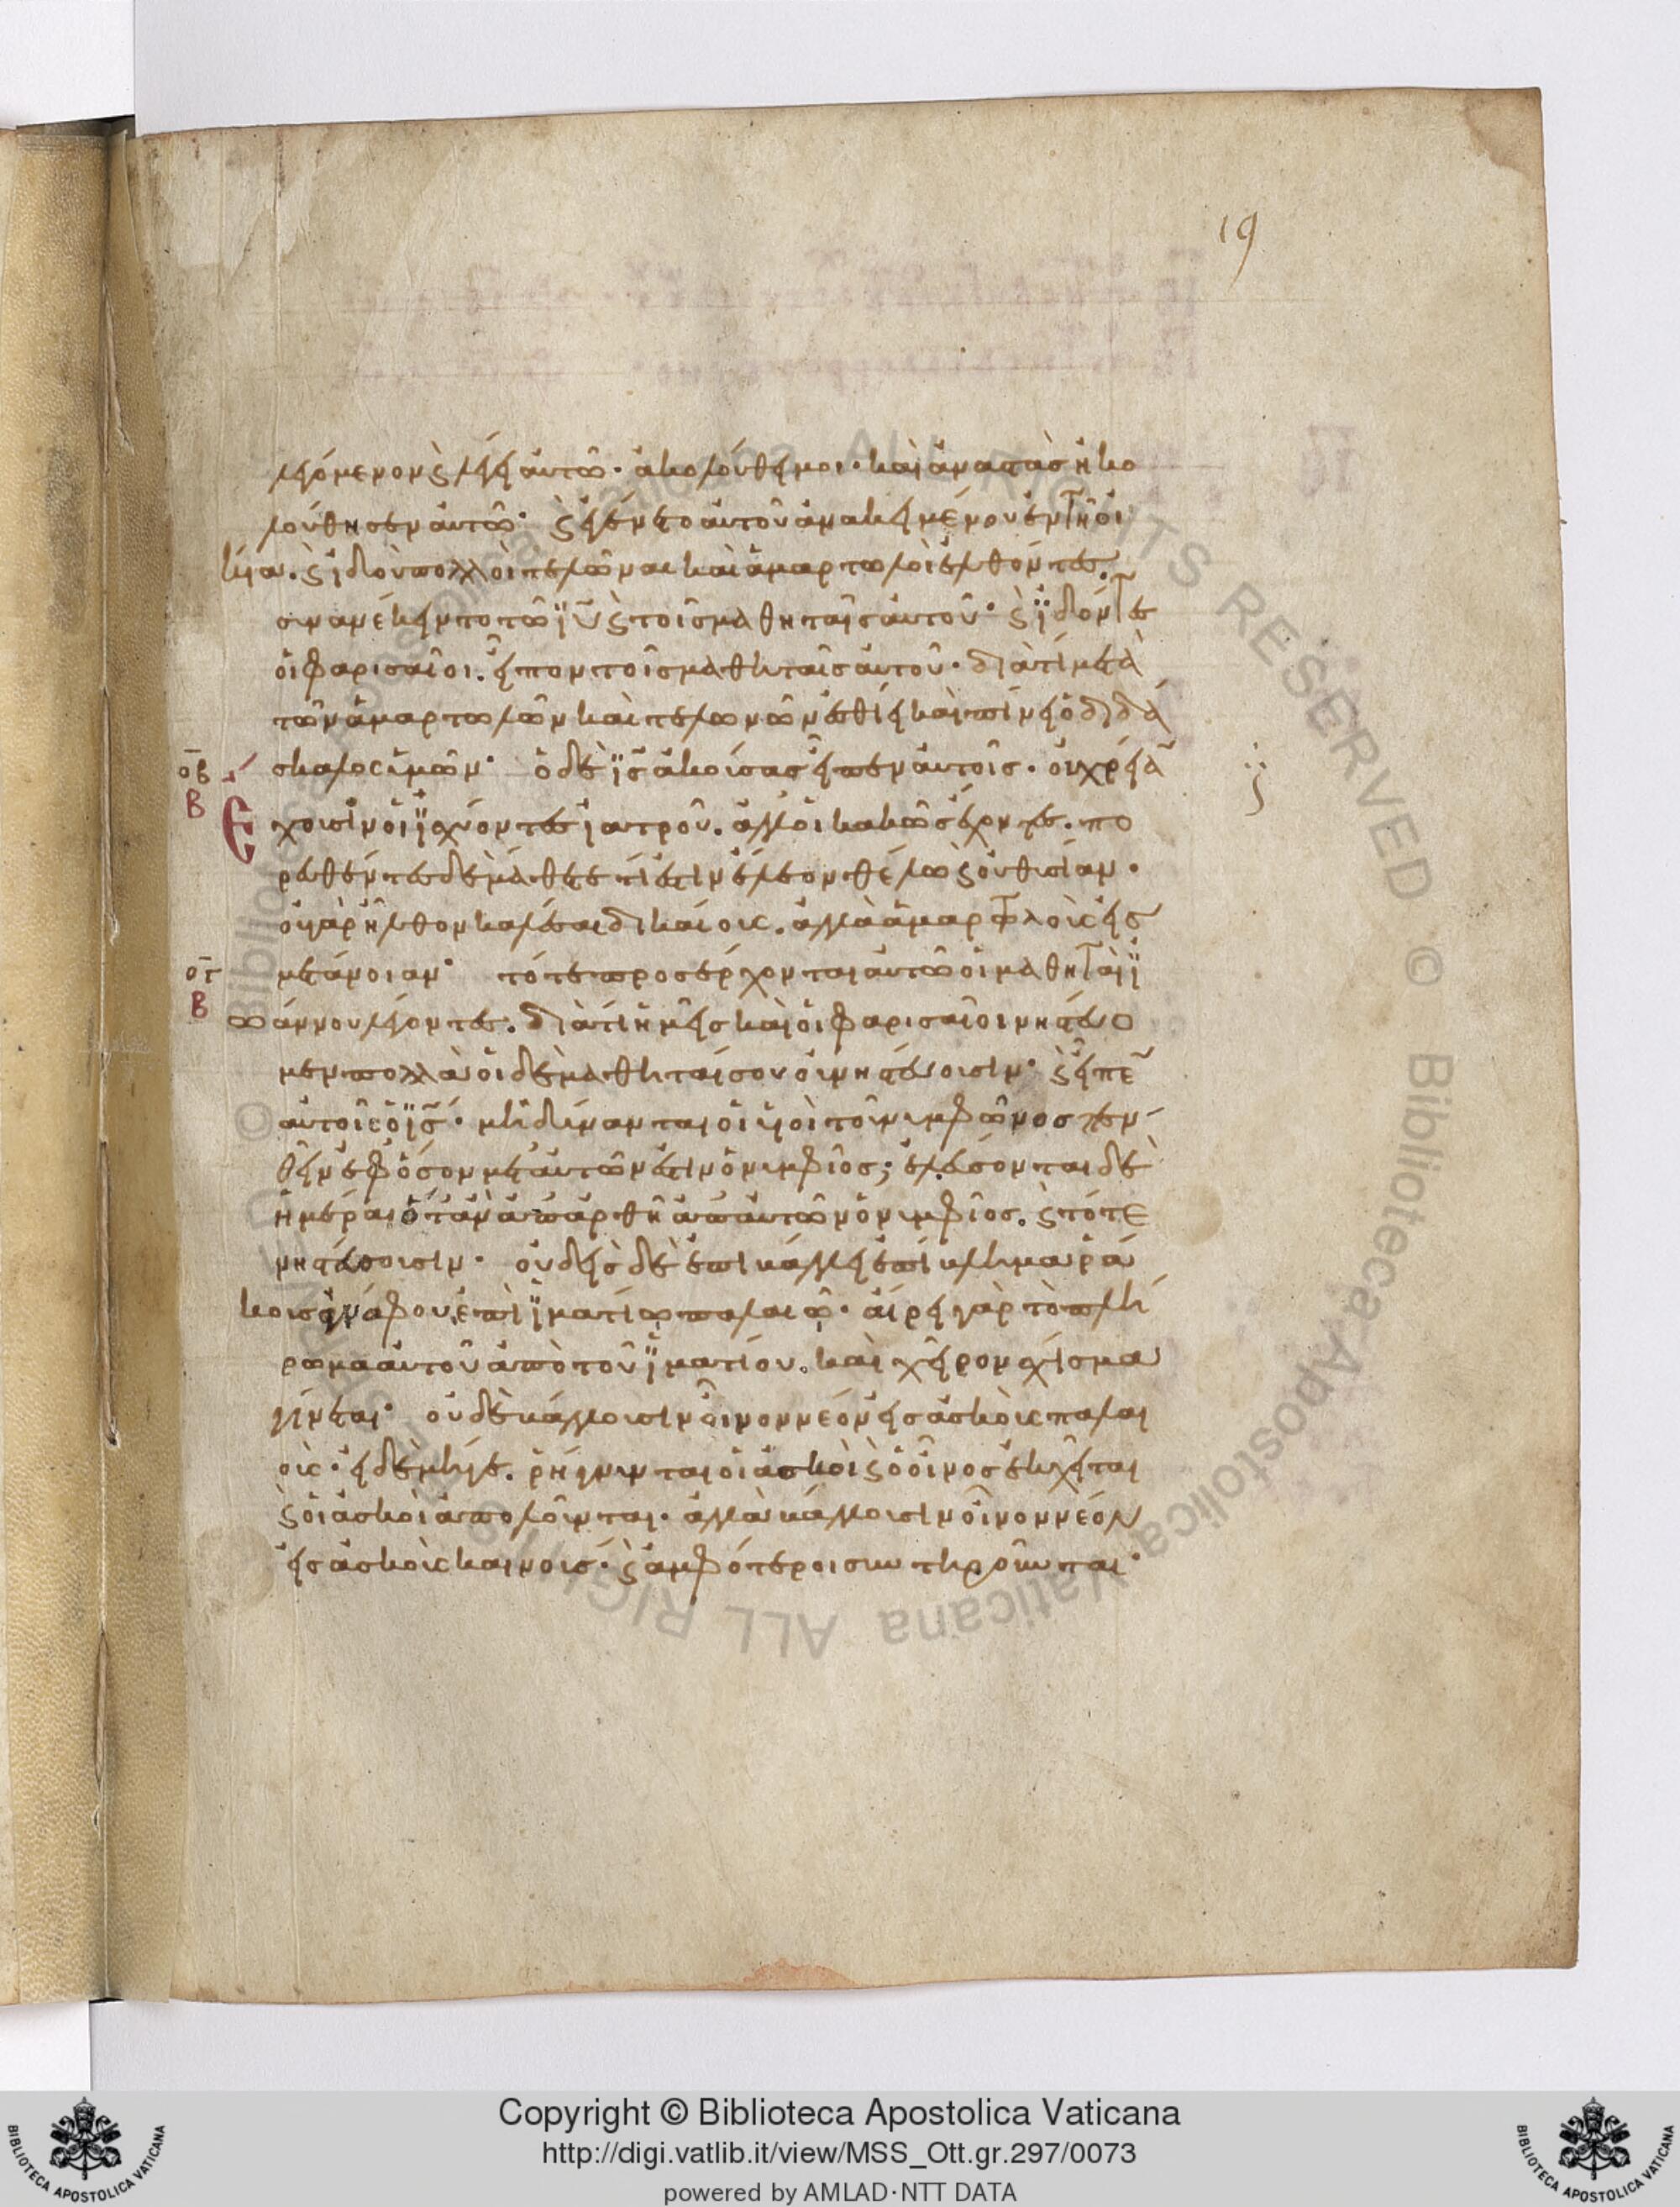 19
λεγόμενον ϛ λέγει αὐτῶ· ἀκολούθει μοι· καὶ ἀναστὰς ἠκο
λούθησεν αὐτῶ· ϛ ἐγένετο αὐτοῦ ἀνακειμένου ἐν τῆ οἰ
κία. ϛ ἰδοὺ πολλοὶ τελῶναι καὶ ἁμαρτωλοὶ ἐλθόντες.
συνανέκειντο τῶ ϊῦ ϛ τοῖς μαθηταῖς αὐτοῦ· ϛ ϊδόντες
οἱ φαρισαῖοι. εἶπον τοῖς μαθηταῖς αὐτοῦ· διὰ τί μετὰ
τῶν ἁμαρτωλῶν καὶ τελωνῶν ἐσθίει καὶ πίνει ὁ διδά
σκαλος ὑμῶν· ὁ δὲ ϊς ἀκούσας εἶπεν αὐτοῖς· οὐ χρείαν
οβ
Β
Ε
χουσιν οἱ ϊσχύοντες ἰατροῦ. ἀλλ οἱ κακῶς ἔχοντες. πο
ρευθέντες δὲ μάθετε τί ἐστιν ἔλεον θέλω ϛ οὐ θυσίαν·
οὐ γὰρ ἦλθον καλέσαι δικαίους. ἀλλὰ ἁμαρτωλοὺς εἰς
ογ
Β
μετάνοιαν· τότε προσέρχονται αὐτῶ οἱ μαθηταὶ ϊ
ωάννου λέγοντες. διὰ τί ἡμεῖς καὶ οἱ φαρισαῖοι νηστεύο
μεν πολλὰ οἱ δὲ μαθηταί σου οὐ νηστεύουσιν· ϛ εἶπεν
αὐτοῖς ὁ ϊς· μὴ δύνανται οἱ υἱοὶ τοῦ νυμφῶνος πεν
θεῖν ἐφ ὅσον μετ αὐτῶν ἐστιν ὁ νυμφίος; ἐλεύσονται δὲ
ἡμέραι ὅταν ἀπαρθῆ ἀπ αὐτῶν ὁ νυμφίος. ϛ τότε
νηστεύσουσιν· οὐδεὶς δὲ ἐπιβάλλει ἐπίβλημα ῥά
κους ἀγνάφου ἐπὶ ϊματίω παλαιῶ· αἴρει γὰρ τὸ πλή
ρωμα αὐτοῦ ἀπὸ τοῦ ϊματίου. καὶ χεῖρον σχίσμα
γίνεται· οὐδὲ βάλλουσιν οἶνον νέον εἰς ἀσκοὺς παλαι
οὺς· εἰ δὲ μήγε. ῥήγνυνται οἱ ἀσκοὶ ϛ ὁ οἶνος ἐκχεῖται
ϛ οἱ ἀσκοὶ ἀπολοῦνται· ἀλλὰ βάλλουσιν οἶνον νέον
εἰς ἀσκοὺς καινοὺς· ϛ ἀμφότεροι συντηροῦνται·
Copyright © Biblioteca Apostolica Vaticana
http://digi.vatlib.it/view/MSS_Ott.gr.297/0073
powered by AMLAD·NTT DATA